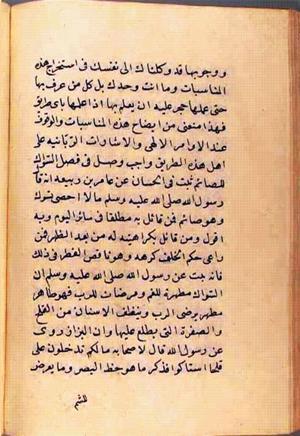 ووجوبها قد وكلناك الى نفسك فى استخراج هذه
المناسبات وما انت وحدك بل كل من عرف بها
حتى عملها حجر عليه ان يعلم بها اذا علمها باى طريق
فهذا منعنى من ايضاح هذه المناسبات والوقوف
عند الاوامر الالهى والاشارات الربانيه على
اهل هذه الطريق واجب وصل فى فصل السواك
للصائم ثبت فى الحسان عن عامر بن ربيعه انه قال
رسول الله صلى الله عليه وسلم مالا احصى يتسوك
وهو صائم فمن قائل به مطلقا فى سائر اليوم وبه
اقول ومن قائل بكراهيته له من بعد الظهر فمن
راعى حكم الخلوف كرهه وهو ناقص النظر فى ذلك
فانه ثبت عن رسول الله صلى الله عليه وسلم ان
السواك مطهرة للفم ومرضات للرب فهو طاهر
مطهر يرضى الرب وينظف الاسنان من القلح
والصفرة التى يطلع عليها وان البزار روى
عن رسول الله قال لاصحابه مالكم تدخلون على
قلحا استاكوا فذكر ما هو حظ البصر وما يعرض
للشم